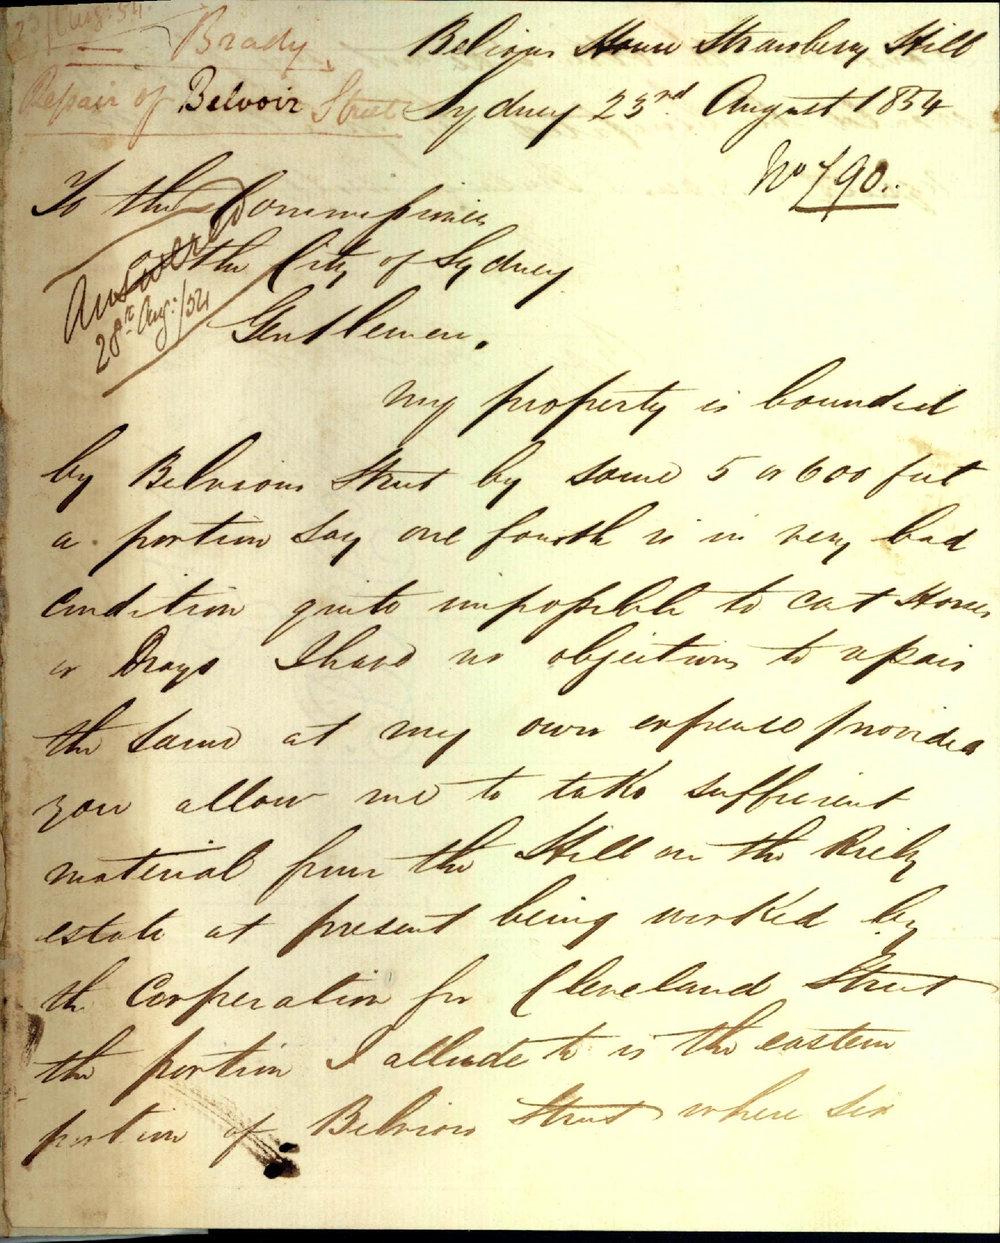 23/Aug: 54.
Brady
Repair of Belvoir Street
Belvoir House Strawberry Hill
Sydney 23rd August 1854
No 790..
To the Commissioners
of the City of Sydney
Answered
28th Aug:/54
Gentlemen.
My property is bounded
by Belvoir Street by some 5 or 600 feet
a portion say one fourth is in very bad
condition quite impossible to cart Stones
or Drays I have no objections to repair
the same at my own expense provided
you allow me to take sufficient
material from the Hill on the Riely
estate at present being worked by
the Corporation for Cleveland Street
the portion I allude to is the eastern
portion of Belvoir Street where six